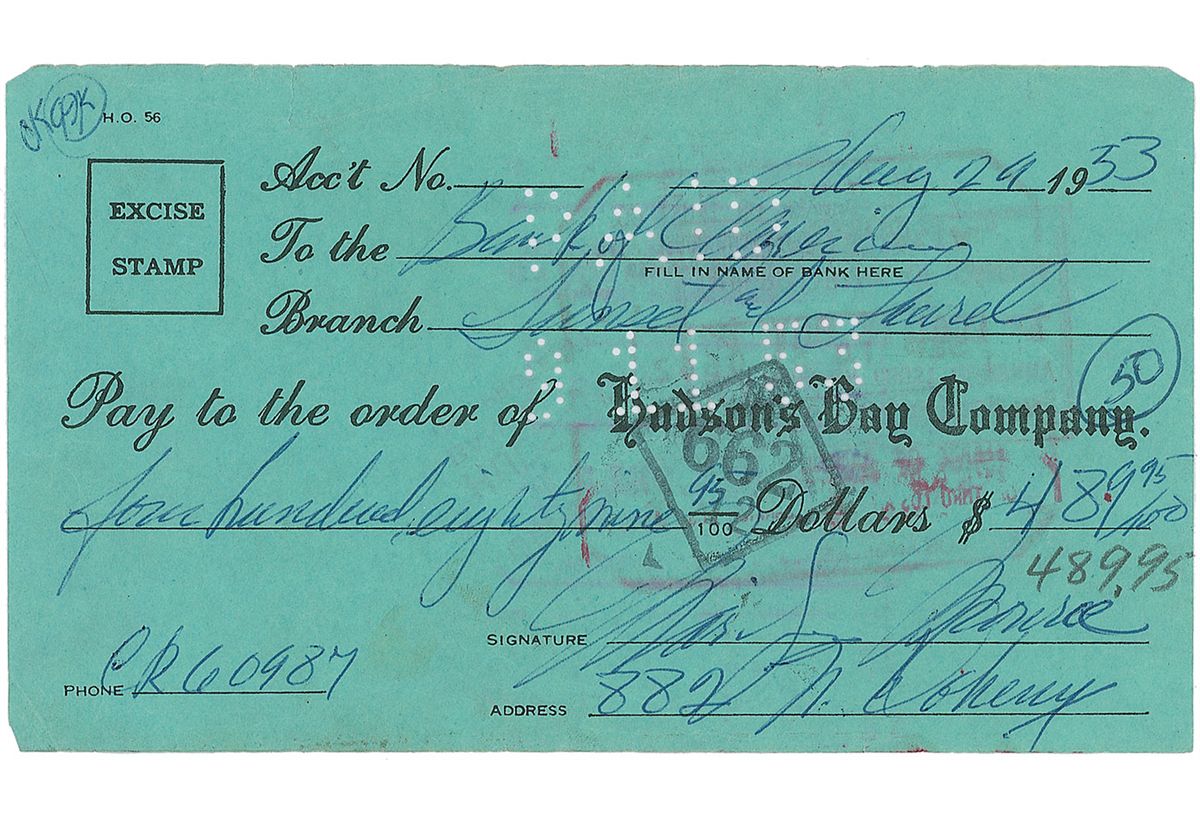 OK
H.O. 56
EXCISE
STAMP
Acc't No. Aug 29 1953
To the Bank of America
FILL IN NAME OF BANK HERE
Branch Sunset and Laurel
50
Pay to the order of Hudson's Bay Company.
four hundred eighty nine 95/100 Dollars $ 489 95/100
662
489.95
SIGNATURE Marilyn Monroe
PHONE CR 60987
ADDRESS 882 N. Doheny